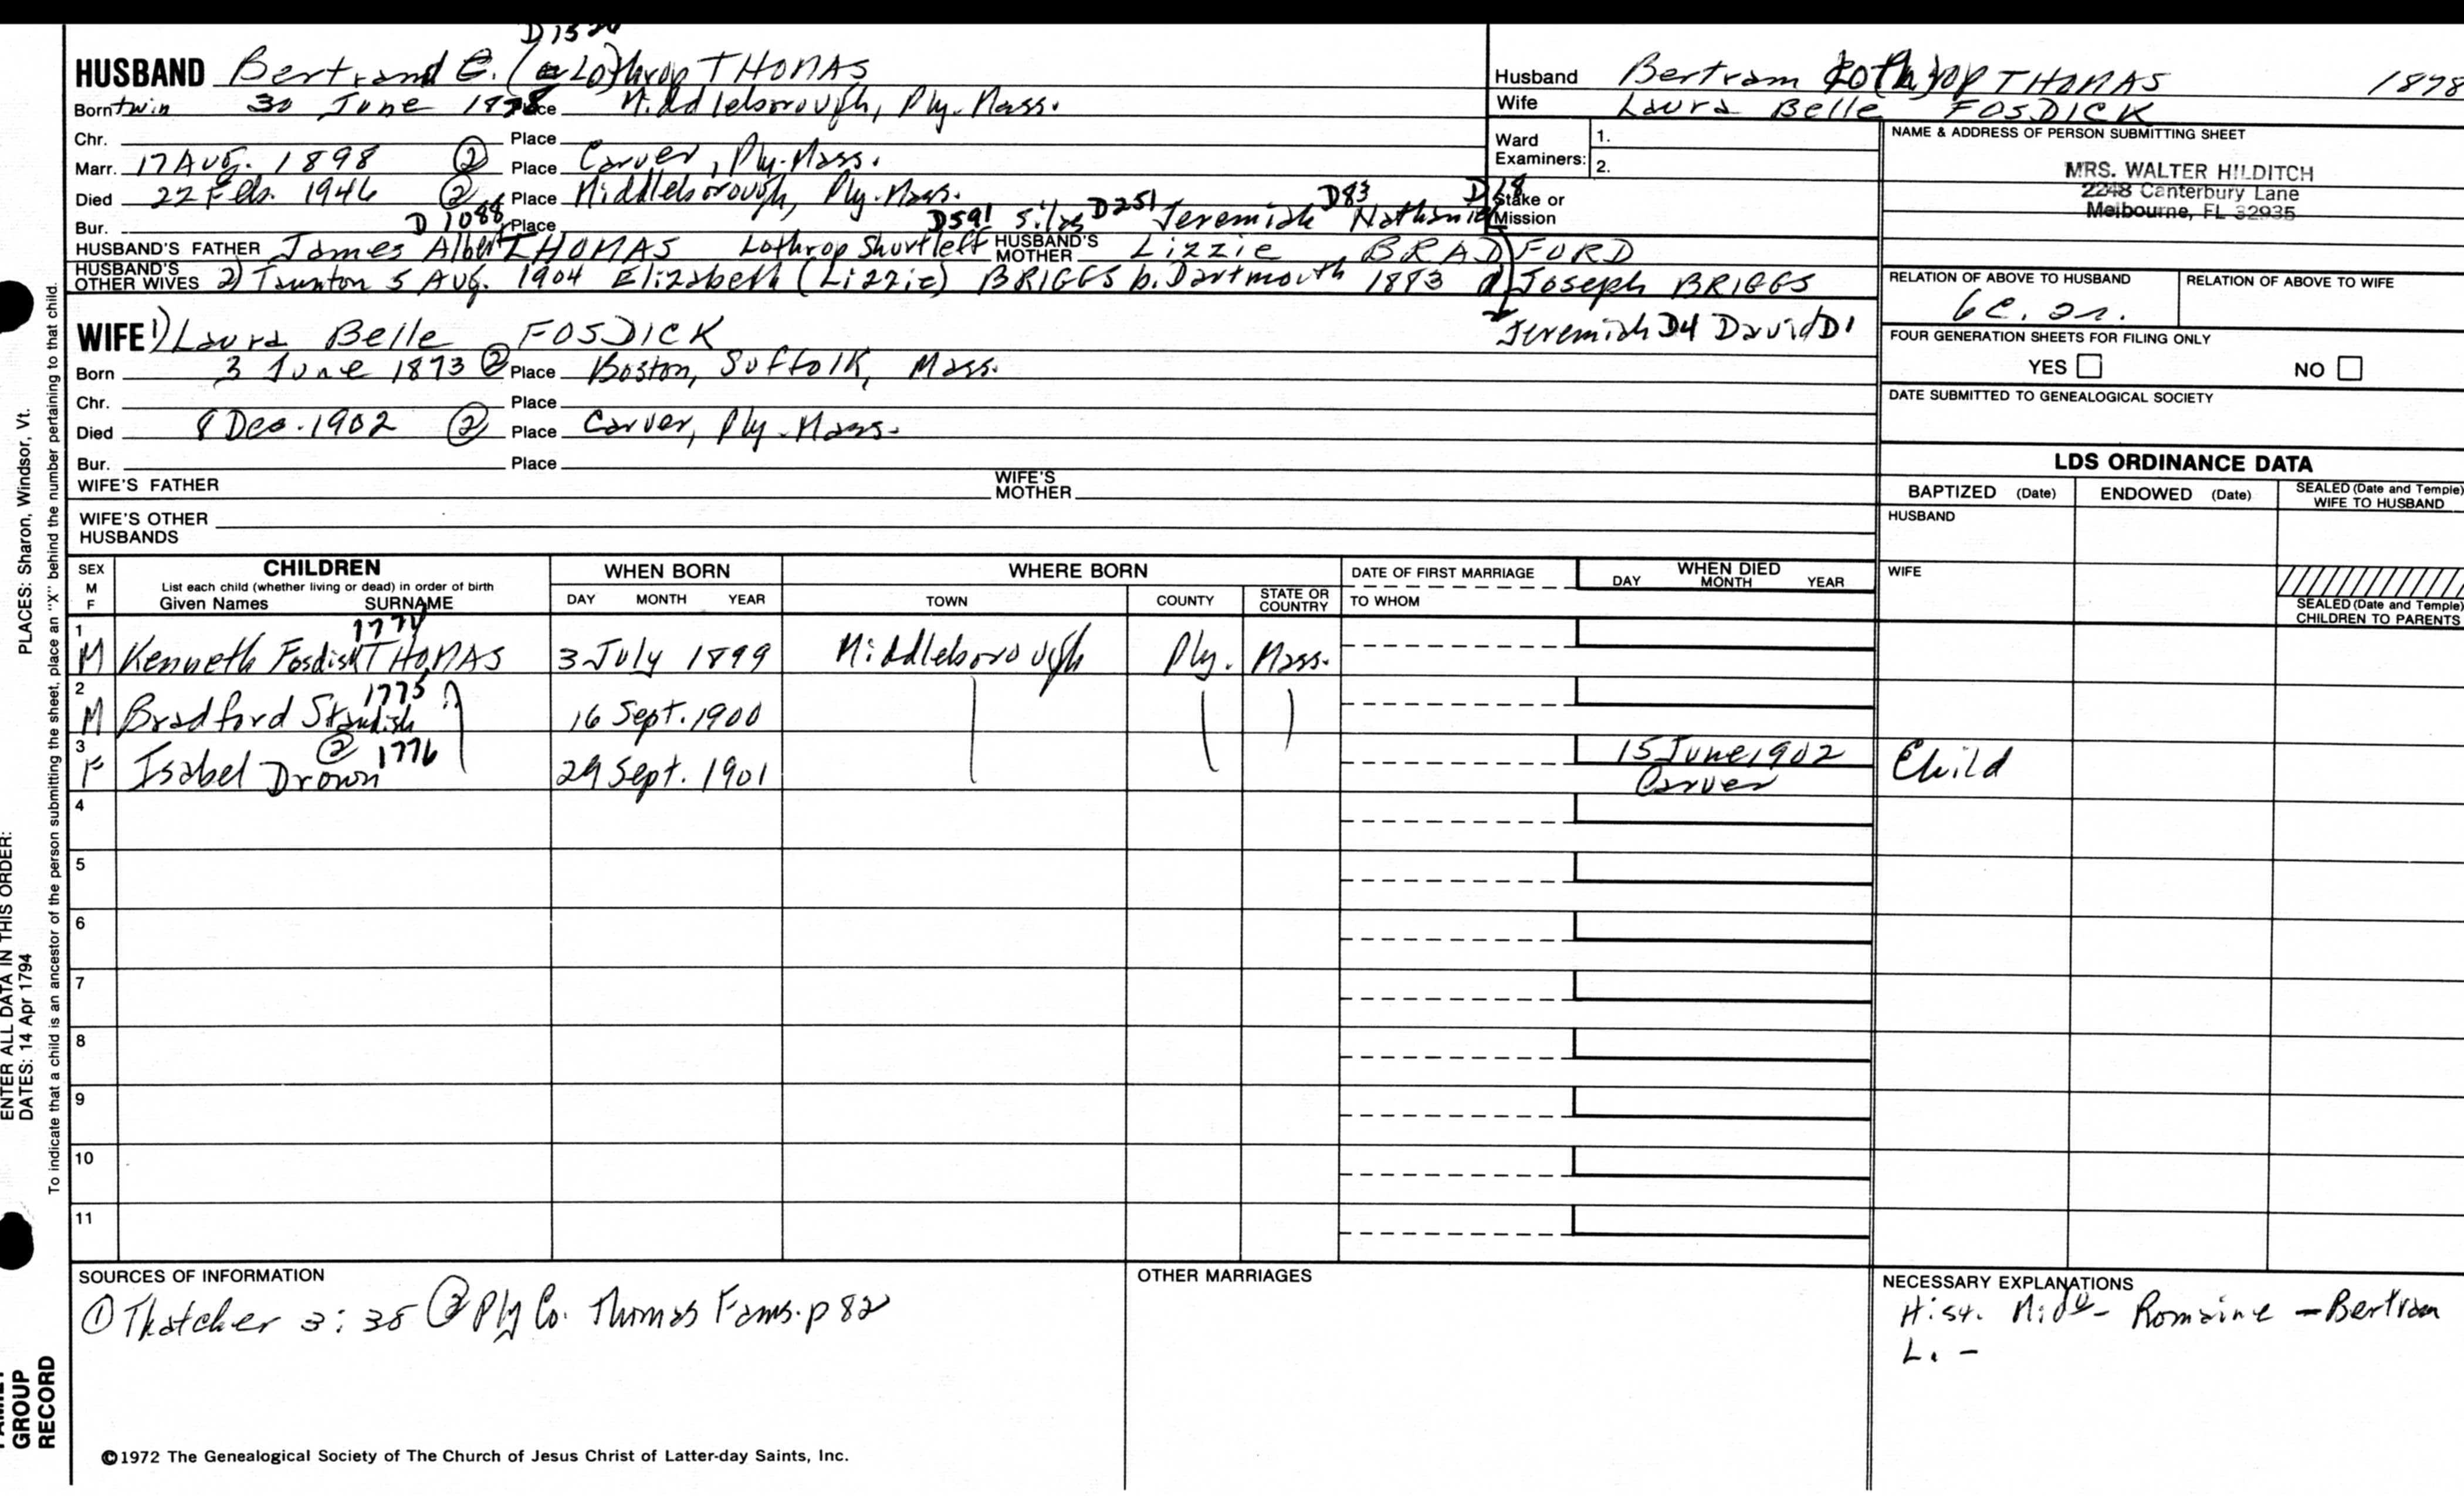 HUSBAND Bertrand E. (Lothrop THOMAS
Born twin 30 June 1878 Place Middleborough, Ply. Mass.
Chr. Place
Marr. 17 Aug. 1898 ② Place Carver, Ply. Mass.
Died 22 Feb. 1946 ② Place Middleborough, Ply. Mass.
Bur. D1088 Place D591 Silas D251 Jeremiah D83 Nathaniel
HUSBAND'S FATHER James Albert THOMAS Lothrop Shurtleff HUSBAND'S MOTHER Lizzie BRADFORD
HUSBAND'S OTHER WIVES 2) Taunton 5 Aug. 1904 Elizabeth (Lizzie) BRIGGS b. Dartmouth 1883 d Joseph BRIGGS
Jeremiah D4 David D1
WIFE 1) Laura Belle FOSDICK
Born 3 June 1873 ② Place Boston, Suffolk, Mass.
Chr. Place
Died 8 Dec. 1902 ② Place Carver, Ply. Mass.
Bur. Place
WIFE'S FATHER WIFE'S MOTHER
WIFE'S OTHER HUSBANDS
Husband Bertram Lothrop THOMAS 1878
Wife Laura Belle FOSDICK
Ward Examiners: 1.
2.
Stake or Mission
NAME & ADDRESS OF PERSON SUBMITTING SHEET
MRS. WALTER HILDITCH
2248 Canterbury Lane
Melbourne, FL 32935
RELATION OF ABOVE TO HUSBAND RELATION OF ABOVE TO WIFE
FOUR GENERATION SHEETS FOR FILING ONLY
YES NO
DATE SUBMITTED TO GENEALOGICAL SOCIETY
LDS ORDINANCE DATA
BAPTIZED (Date) ENDOWED (Date) SEALED (Date and Temple) WIFE TO HUSBAND
HUSBAND
WIFE
SEALED (Date and Temple) CHILDREN TO PARENTS
SEX M F
CHILDREN
List each child (whether living or dead) in order of birth
Given Names SURNAME
WHEN BORN
DAY MONTH YEAR
WHERE BORN
TOWN COUNTY STATE OR COUNTRY
DATE OF FIRST MARRIAGE
TO WHOM
WHEN DIED
DAY MONTH YEAR
1774
1 M Kenneth Fosdish THOMAS 3 July 1899 Middleborough Ply. Mass.
1775
2 M Bradford Standish 16 Sept. 1900
② 1776
3 F Isabel Drown 29 Sept. 1901 15 June 1902 Child
Carver
4
5
6
7
8
9
10
11
SOURCES OF INFORMATION
① Thatcher 3:38 ② Ply Co. Thomas Fams. p 82
OTHER MARRIAGES
NECESSARY EXPLANATIONS
Hist. Mid - Romaine - Bertram
L. -
©1972 The Genealogical Society of The Church of Jesus Christ of Latter-day Saints, Inc.
PLACES: Sharon, Windsor, Vt.
ENTER ALL DATA IN THIS ORDER:
DATES: 14 Apr 1794
To indicate that a child is an ancestor of the person submitting the sheet, place an "X" behind the number pertaining to that child.
GROUP
RECORD